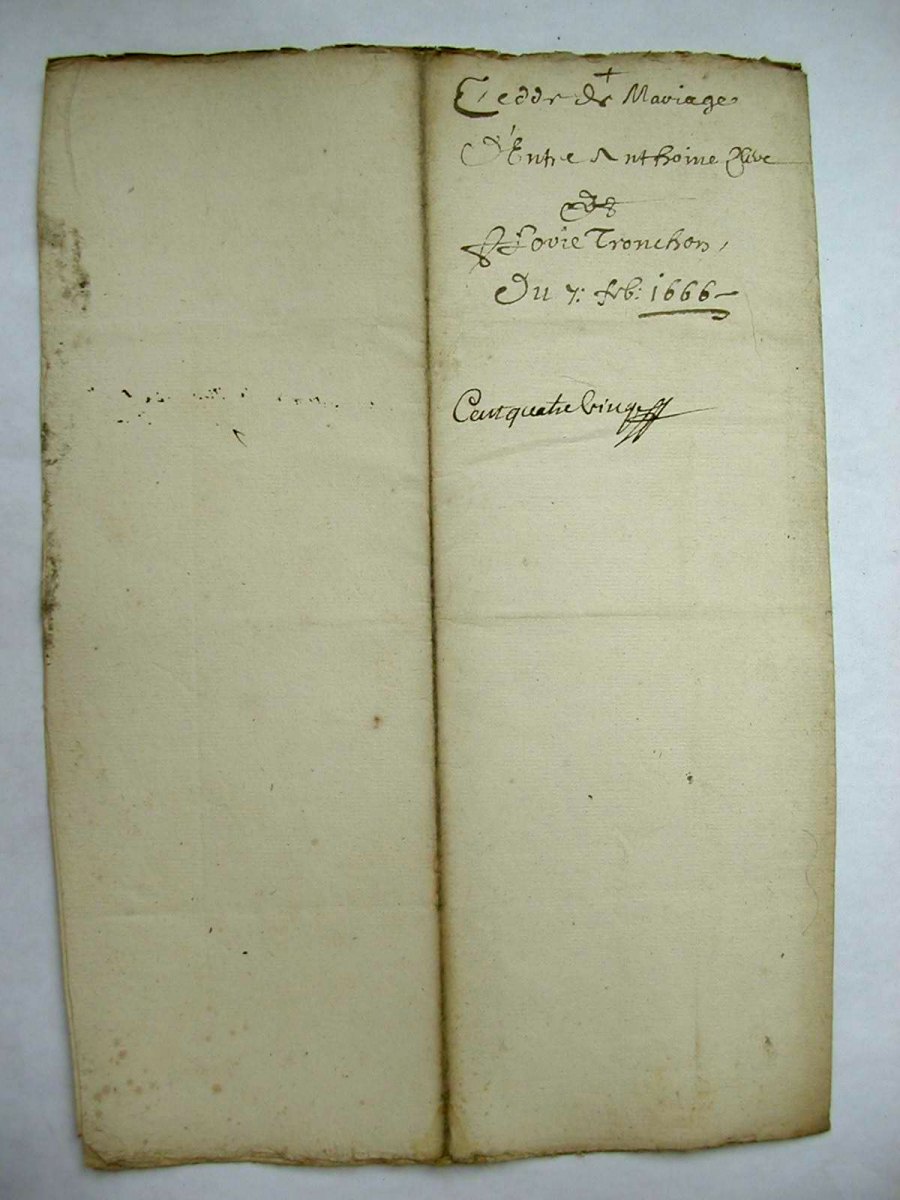 Cedde de Mariage
D'Entre Anthoine
Et
Jovie Tronchon,
Du 7: feb: 1666
Centquatre vingt